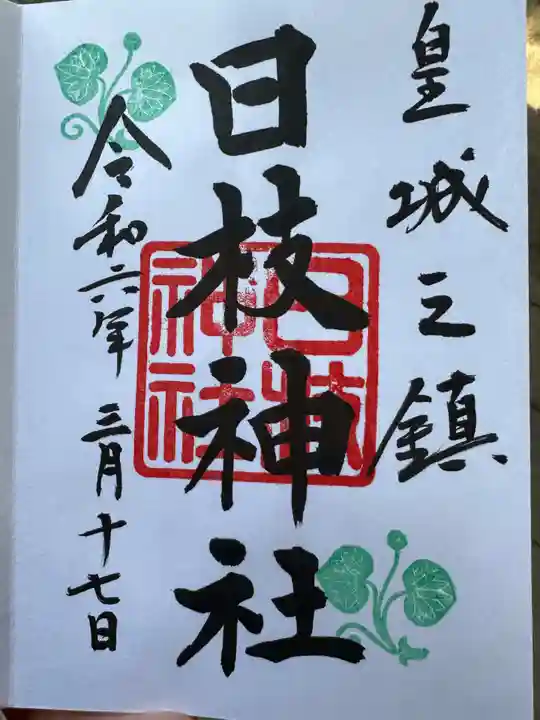 皇城之鎮
日枝神社
日枝神社
令和六年三月十七日